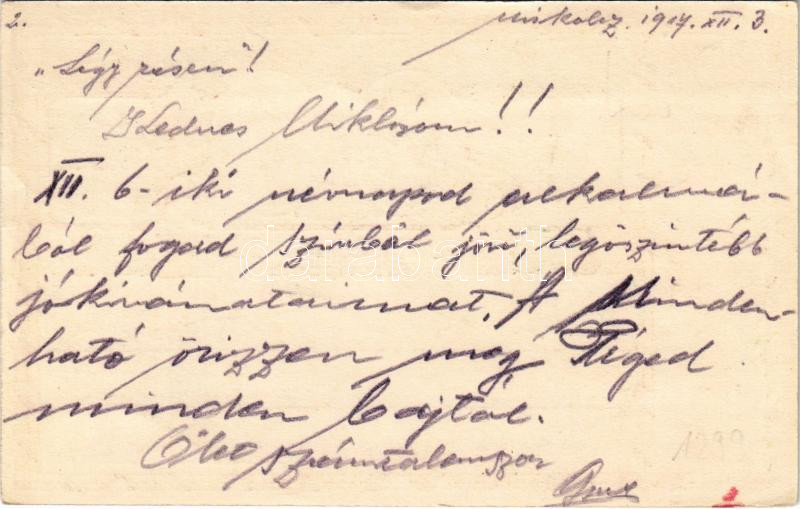 2.
Miskolcz. 1917. XII. 3.
"Légy résen"!
Kedves Miklósom!!
XII. 6-iki névnapod alkalmá-
ból fogad szívból jövő, legőszintébb
jókívánataimat. A Minden-
ható őrizzen meg Téged
minden bajtól.
Ölel számtalanszor
1299
darabanth